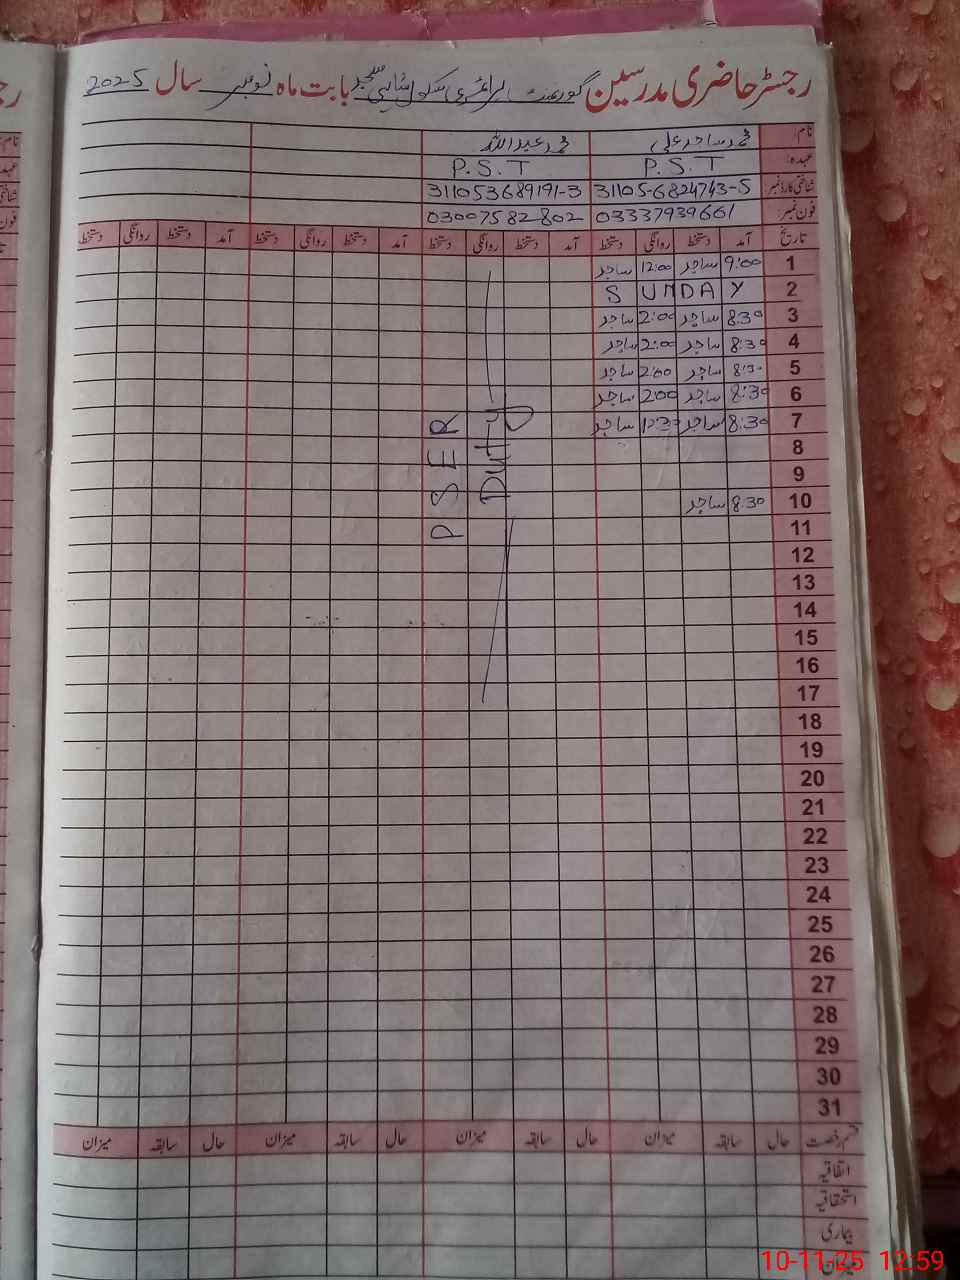 رجسٹر حاضری مدرسین گورنمنٹ پرائمری سکول مسجد بابت ماہ نومبر سال 2025
نام: محمد ساجد علی محمد عبداللہ
عہدہ: P.S.T P.S.T
شناختی کارڈ نمبر: 31105-6824743-5 311053689191-3
فون نمبر: 03337939661 03007582802
تاریخ آمد دستخط روانگی دستخط آمد دستخط روانگی دستخط آمد دستخط روانگی دستخط آمد دستخط روانگی دستخط
1 9:00 ساجد 12:00 ساجد
2 SUNDAY
3 8:30 ساجد 2:00 ساجد
4 8:30 ساجد 2:00 ساجد
5 8:30 ساجد 2:00 ساجد
6 8:30 ساجد 200 ساجد
7 8:30 ساجد 12:30 ساجد
PSER
Duty
8
9
10 8:30 ساجد
11
12
13
14
15
16
17
18
19
20
21
22
23
24
25
26
27
28
29
30
31
قسم رخصت حال سابقہ میزان حال سابقہ میزان حال سابقہ میزان حال سابقہ میزان
اتفاقیہ
استحقاقیہ
بیماری
میزان
10-11-25 12:59